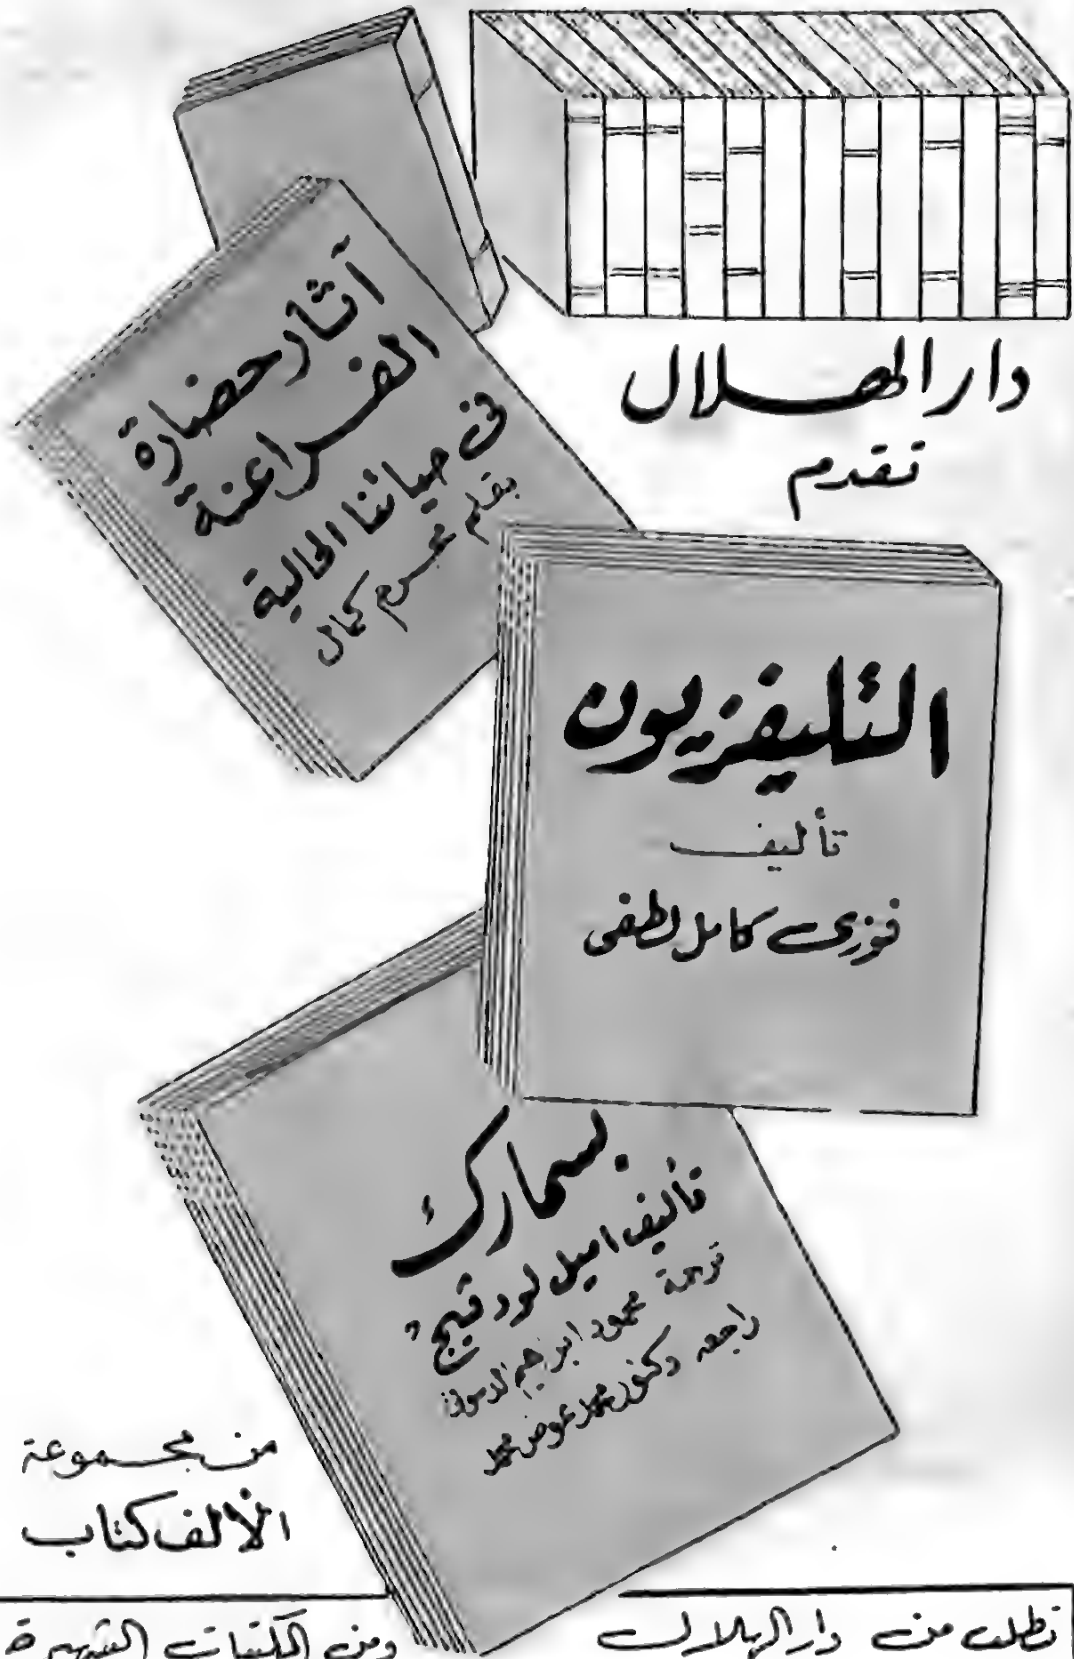 دار الهلال
تقدم
آثار حضارة
الفراعنة
فى حياتنا الحالية
بقلم محرم كمال
التليفزيون
تأليف
فوزى كامل لطفى
بسمارك
تأليف اميل لودفيج
ترجمة محمود ابراهيم الدسوقى
راجعه دكتور محمد عوض محمد
من مجموعة
الألف كتاب
تطلب من دار الهلال ومن المكتبات الشهيرة